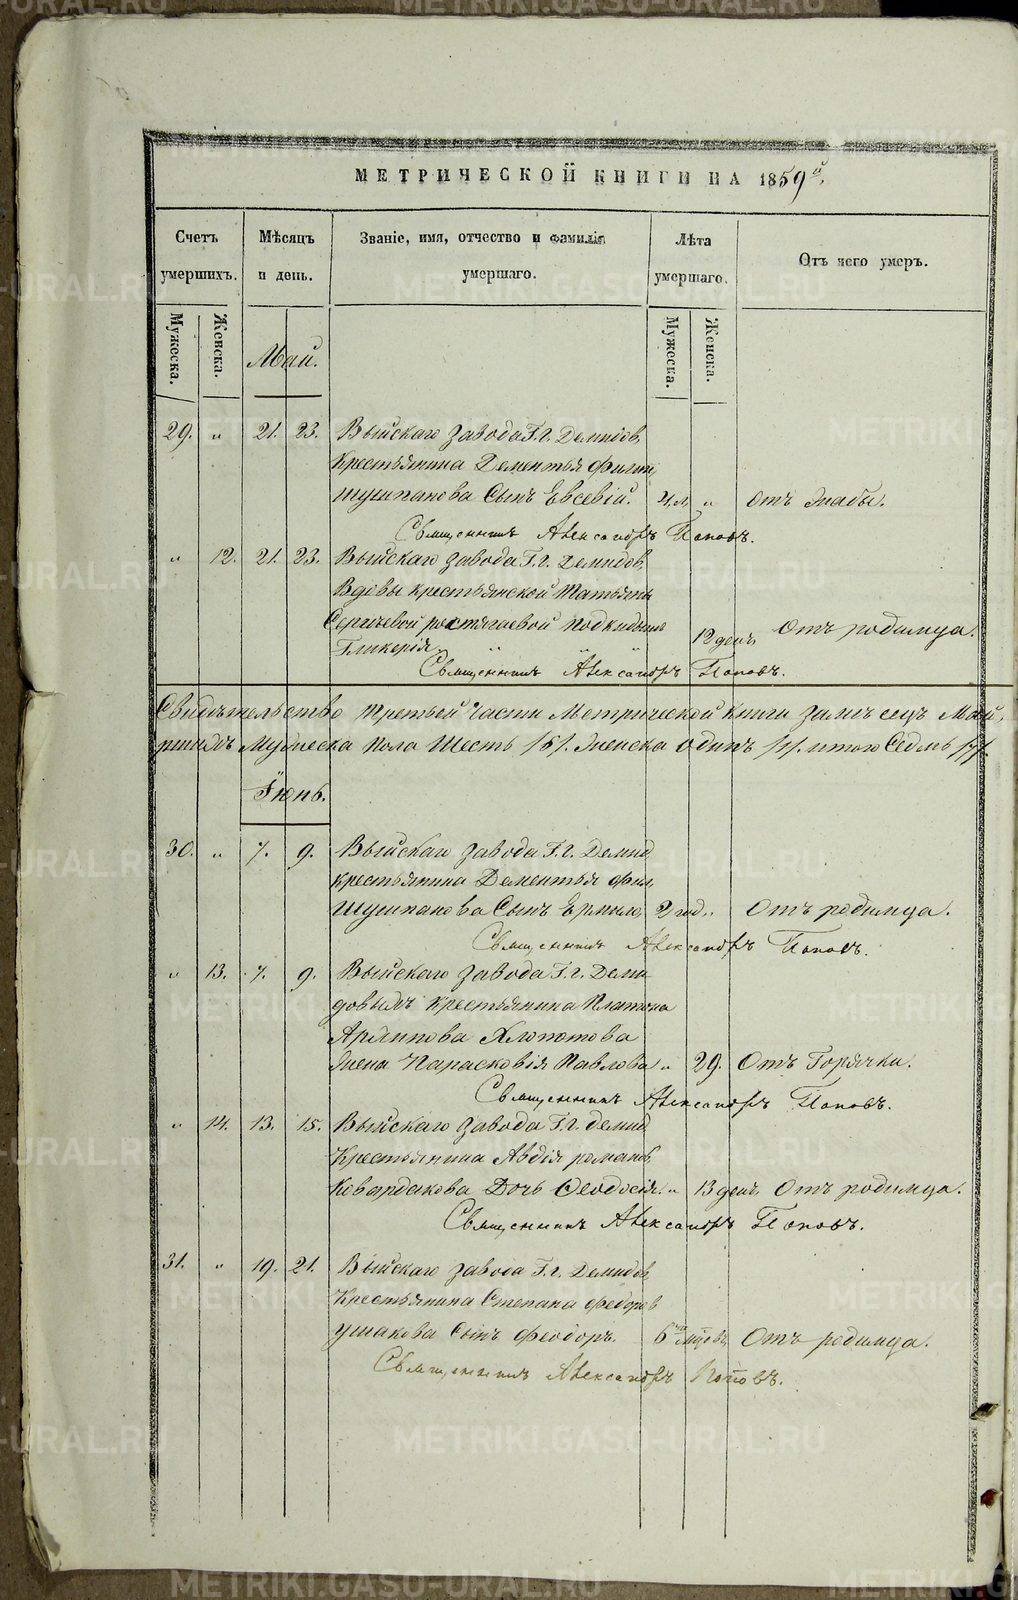 МЕТРИЧЕСКОЙ КНИГИ НА 1859й.
Счетъ умершихъ.
Мѣсяцъ и день.
Званіе, имя, отчество и фамилія умершаго.
Лѣта умершаго.
Отъ чего умеръ.
Мужеска.
Женска.
Мужеска.
Женска.
Май.
29. " 21. 23. Выйскаго завода Г.г. Демидов,
крестьянина Дементья Филип,
Шушпанова Сынъ Евсевій. 4.л. " Отъ жабы.
Священникъ Александръ Поповъ.
" 12. 21. 23. Выйскаго завода Г.г. Демидов,
Вдовы крестьянской Татьяны
Сергѣевой Ростягаевой подкидыш
Гликерія. " " " 12 ден, Отъ родимца.
Священникъ Александръ Поповъ.
Свидѣтельство Третьей Части Метрической книги за мѣсецъ Май,
Мужеска пола Шесть /6/. Женска одинъ /1/. итого Седмь /7/.
Іюнь.
30. " 7. 9. Выйскаго завода Г.г. Демид
крестьянина Дементья Фил,
Шушпанова Сынъ Ермило, 2 год " Отъ родимца.
Священникъ Александръ Поповъ.
" 13. 7. 9. Выйскаго завода Г.г. Деми
довыхъ крестьянина Платона
Архипова Хлопотова
жена Парасковія Павлова " 29. Отъ Горячки.
Священникъ Александръ Поповъ.
" 14. 13. 15. Выйскаго завода Г.г. Демид
Крестьянина Авдія Романов,
Кевардакова Дочь Ѳеодосія. " 13 ден, Отъ родимца.
Священникъ Александръ Поповъ.
31. " 19. 21. Выйскаго завода Г.г. Демидов
Крестьянина Степана Федоров
Ушакова Сынъ Феодоръ. 6ти мцовъ, Отъ родимца.
Священникъ Александръ Поповъ.
METRIKI.GASO-URAL.RU